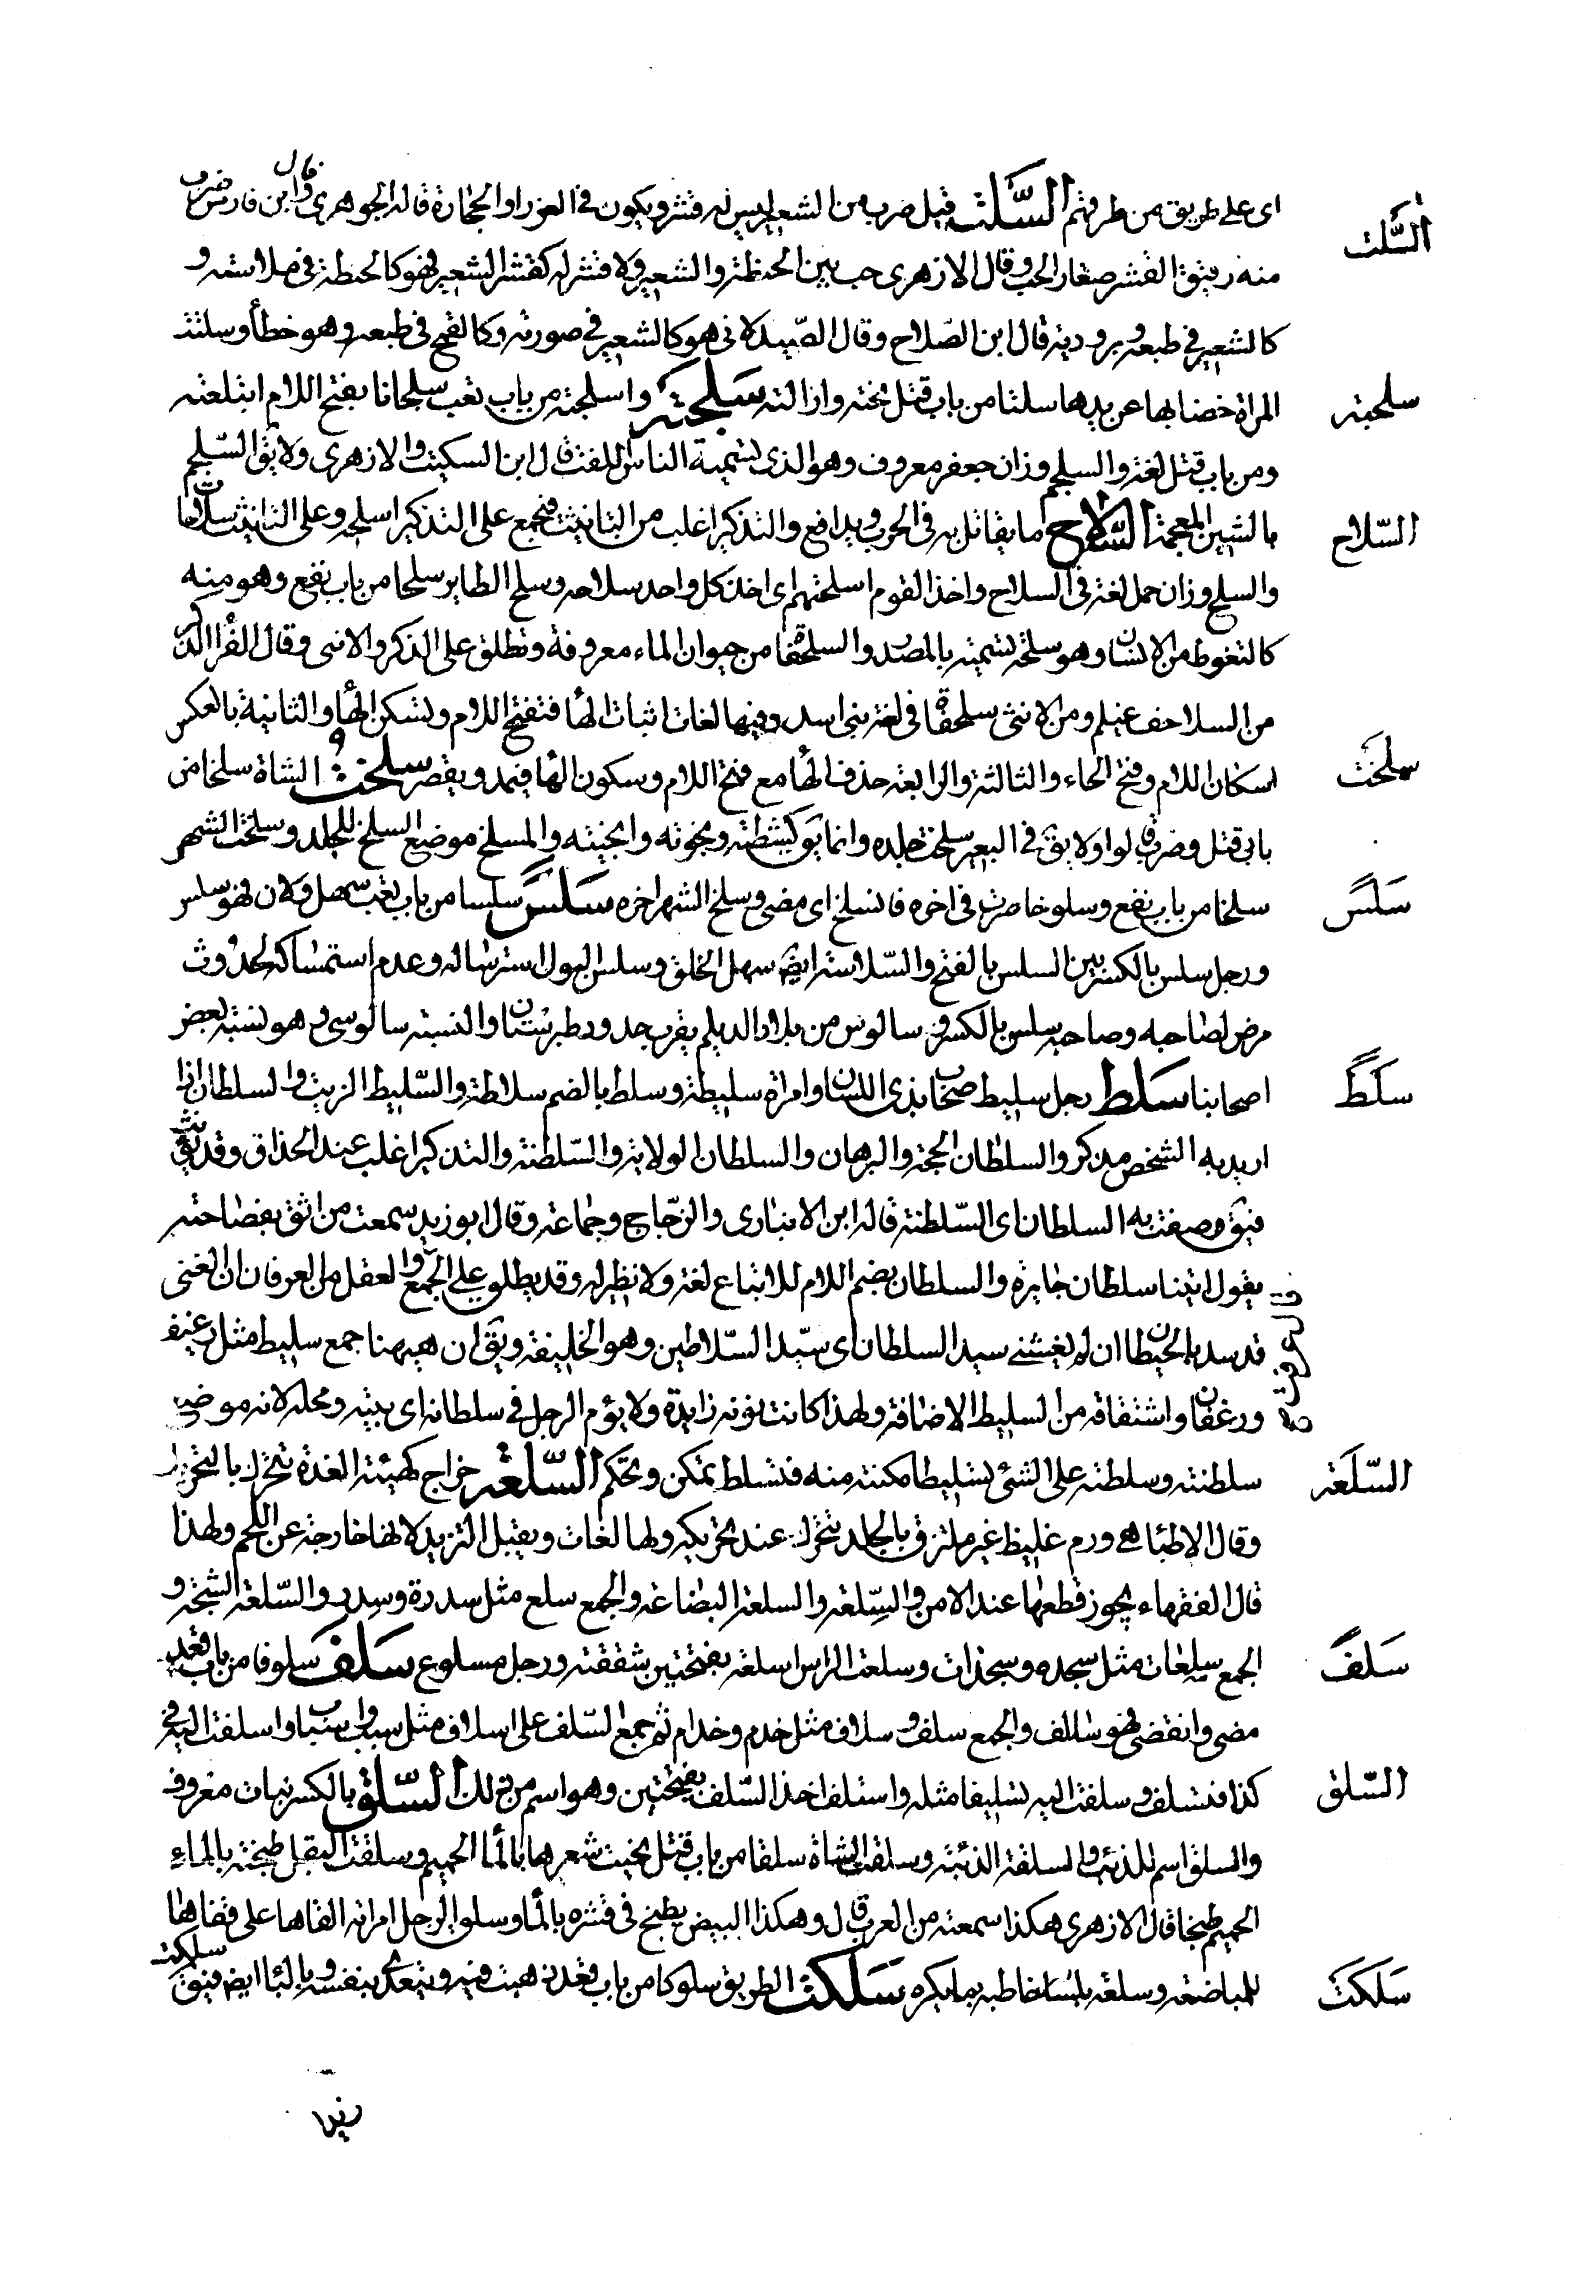 السُّلت
اى على طريق من طرقهم السُّلت قيل ضرب من الشعير ليس له قشر ويكون فى الغور والحجازة قاله الجوهرى وقال ابن فارس ضرب
منه رقيق القشر صغار الحب وقال الازهرى حب بين الحنطة والشعير ولا قشر له كقشر الشعير فهو كالحنطة فى ملاسته و
كالشعير فى طبعه وبرودته قال ابن الصّلاح وقال الصّيدلانى هو كالشعير فى صورته وكالقمح فى طبعه وهو خطأ وسلتت
سلجته
المراة خضابها عن يدها سلتا من باب قتل نحته وازالته سَلجته واسلجته من باب تعب سلجانا بفتح اللام ابتلعته
ومن باب قتل لغة والسلجم وزان جعفر معروف وهو الذى تسميه الناس اللفت قال ابن السكيت والازهرى ولا يق السّلجم
السّلاح
بالشين المعجمة السّلاح ما يقاتل به فى الحرب ويدافع والتذكير اغلب من التانيث فيجمع على التذكير اسلحة وعلى التانيث سلاحات
والسلح وزان حمل لغة فى السلاح واخذ القوم اسلحتهم اى اخذ كل واحد سلاحه وسلح الطاير سلحا من باب نفع وهو منه
كالتغوط من الانسان وهو سلحه تسمية بالمصدر والسلحفاة من حيوان الماء معروفة وتطلق على الذكر والانثى وقال الفرا الذكر
من السلاحف غيلم ومن الانثى سلحفاة فى لغة بنى اسد وفيها لغات اثبات الهأ فتفتح اللام وتسكن الحأ والثانية بالعكس
سلخت
اسكان اللام وفتح الحاء والثالثة والرابعة حذف الهأ مع فتح اللام وسكون الحأ فيمد ويقصر سلخت الشاة سلخا من
بابى قتل وضرب قالوا ولا يق فى البعير سلخت جلده وانما يق كشطته ونجوته وانجيته والمسلخ موضع السلخ للجلد وسلخت الشهر
سَلِسَ
سلخا من باب نفع وسلوخا صرت فى اخره فانسلخ اى مضى وسلخ الشهر اخره سَلسَ سلسا من باب تعب سهل ولان فهو سلس
ورجل سلس بالكسر بين السلس بالفتح والسّلاسة ايضا سهل الخلق وسلس البول استرساله وعدم استمساكه لحدوث
مرض لصاحبه وصاحبه سلس بالكسر وسالوس من بلاد الديلم بقرب حدود طبرستان والنسبة سالوسى وهو نسبة لبعض
سَلَطَ
اصحابنا سَلط رجل سليط صخاب بذى اللسان وامراة سليطة وسلط بالضم سلاطة والسّليط الزيت والسلطان اذا
اريد به الشخص مذكر والسلطان الحجة والبرهان والسلطان الولاية والسّلطنة والتذكير اغلب عند الحذاق وقد يؤنث
فيق وصفت به السلطان اى السّلطنة قاله ابن الانبارى والزجّاج وجماعة وقال ابو زيد سمعت من اثق بفصاحته
يقول اتتنا سلطان جايرة والسلطان بضم اللام للاتباع لغة ولا نظير له وقد يطلق على الجمع والعقل من العرفان ان الغنى
قد سد بالحيطان ان لم يغشنى سيد السلطان اى سيّد السّلاطين وهو الخليفة ويق ان هيهنا جمع سليط مثل رغيف
ورغفان واشتقاقه من السليط الاضافة ولهذا كانت نونه زايدة ولا يؤم الرجل فى سلطانه اى بيته ومحله لانه موضع
السّلعة
سلطنته وسلطته على الشئ تسليطا مكنته منه فتسلط تمكن وتحكم السّلعة خراج كهيئة الغدة تتحرك بالتحريك
وقال الاطبا هى ورم غليظ غير ملتزق بالجلد تتحرك عند تحريكه ولها لغات ويقبل التزيد لانها خارجة عن اللحم ولهذا
قال الفقهاء يجوز قطعها عند الامن والسِّلعة والسلعة البضاعة والجمع سلع مثل سدرة وسدر والسّلعة الشجة و
سَلَفَ
الجمع سلعات مثل سجدة وسجدات وسلعت الراس اسلعه بفتحتين شققته ورجل مسلوع سَلف سلوفا من باب قعد
مضى وانقضى فهو سالف والجمع سلف وسلاف مثل خدم وخدام ثم جمع السّلف على اسلاف مثل سبب واسباب واسلفت اليه فى
السّلق
كذا فتسلف وسلفت اليه تسليفا مثله واستلف اخذ السّلف بفتحتين وهو اسم من ذلك السّلق بالكسر نبات معروف
والسلق اسم للذئب والسلقة الذئبة وسلقت الشاة سلقا من باب قتل نحيت شعرها بالمأ الحميم وسلقت البقل طبخته بالماء
الحميم طبخا قال الازهرى هكذا سمعته من العرب قال وهكذا البيض يطبخ فى قشره بالمأ وسلق الرجل امراته القاها على قفاها
سَلَكتَ
للمباضعة وسلقه بلسانه خاطبه بما يكره سَلكت الطريق سلوكا من باب قعد ذهبت فيه ويتعدى بنفسه وبالبا ايضا فيق سلكت
زيدا